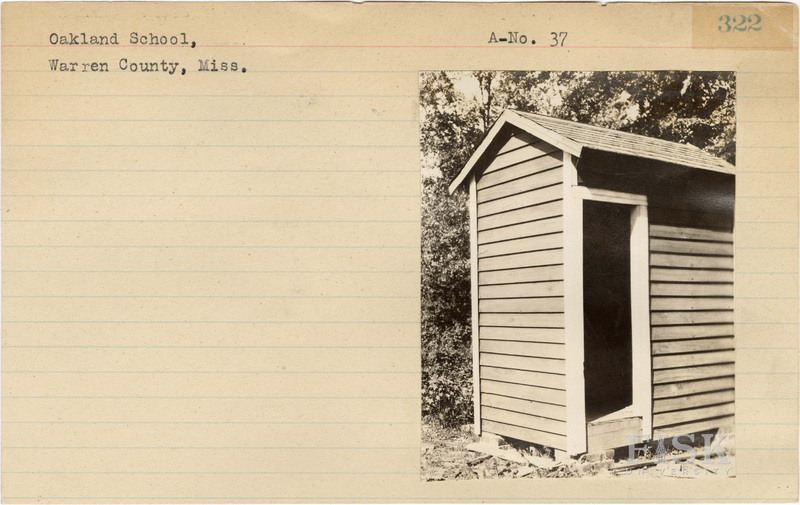 Oakland School,
A-No. 37
322
Warren County, Miss.
FISK
UNIVERSITY